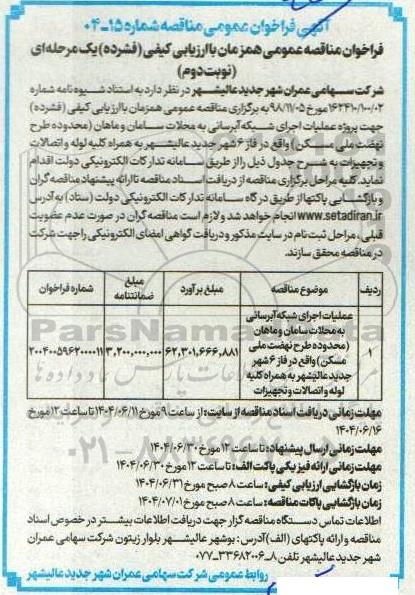 آگهی فراخوان عمومی مناقصه شماره ۱۵-۰۴
فراخوان مناقصه عمومی همزمان با ارزیابی کیفی (فشرده) یک مرحله ای
(نوبت دوم)
شرکت سهامی عمران شهر جدید عالیشهر در نظر دارد به استناد شیوه نامه شماره
۱۶۲۴۱۰/۱۰۰/۰۲ مورخ ۹۸/۱۱/۰۵ به برگزاری مناقصه عمومی همزمان با ارزیابی کیفی (فشرده)
جهت پروژه عملیات اجرای شبکه آبرسانی به محلات سامان و ماهان (محدوده طرح
نهضت ملی مسکن) واقع در فاز ۶ شهر جدید عالیشهر به همراه کلیه لوله و اتصالات
و تجهیزات به شرح جدول ذیل را از طریق سامانه تدارکات الکترونیکی دولت اقدام
نماید. کلیه مراحل برگزاری مناقصه از دریافت اسناد مناقصه تا ارائه پیشنهاد مناقصه گران
و بازگشایی پاکتها از طریق درگاه سامانه تدارکات الکترونیکی دولت (ستاد) به آدرس
www.setadiran.ir انجام خواهد شد و لازم است مناقصه گران در صورت عدم عضویت
قبلی، مراحل ثبت نام در سایت مذکور و دریافت گواهی امضای الکترونیکی را جهت شرکت
در مناقصه محقق سازند.
ردیف موضوع مناقصه مبلغ برآورد مبلغ ضمانتنامه شماره فراخوان
۱ عملیات اجرای شبکه آبرسانی به محلات سامان و ماهان (محدوده طرح نهضت ملی مسکن) واقع در فاز ۶ شهر جدید عالیشهر به همراه کلیه لوله و اتصالات و تجهیزات ۶۲,۳۰۱,۶۶۶,۸۸۱ ۳,۲۰۰,۰۰۰,۰۰۰ ۲۰۰۴۰۰۵۹۶۲۰۰۰۰۱۱
مهلت زمانی دریافت اسناد مناقصه از سایت: از ساعت ۹ مورخ ۱۴۰۴/۰۶/۱۱ تا ساعت ۱۲ مورخ
۱۴۰۴/۰۶/۱۶
مهلت زمانی ارسال پیشنهاد: تا ساعت ۱۲ مورخ ۱۴۰۴/۰۶/۳۰
مهلت زمانی ارائه فیزیکی پاکت الف: تا ساعت ۱۲ مورخ ۱۴۰۴/۰۶/۳۰
زمان بازگشایی ارزیابی کیفی: ساعت ۸ صبح مورخ ۱۴۰۴/۰۶/۳۱
زمان بازگشایی پاکات مناقصه: ساعت ۸ صبح مورخ ۱۴۰۴/۰۷/۰۱
اطلاعات تماس دستگاه مناقصه گزار جهت دریافت اطلاعات بیشتر در خصوص اسناد
مناقصه و ارائه پاکتهای (الف) آدرس: بوشهر عالیشهر بلوار زیتون شرکت سهامی عمران
شهر جدید عالیشهر تلفن ۸-۳۳۶۸۲۰۰۶-۰۷۷
روابط عمومی شرکت سهامی عمران شهر جدید عالیشهر